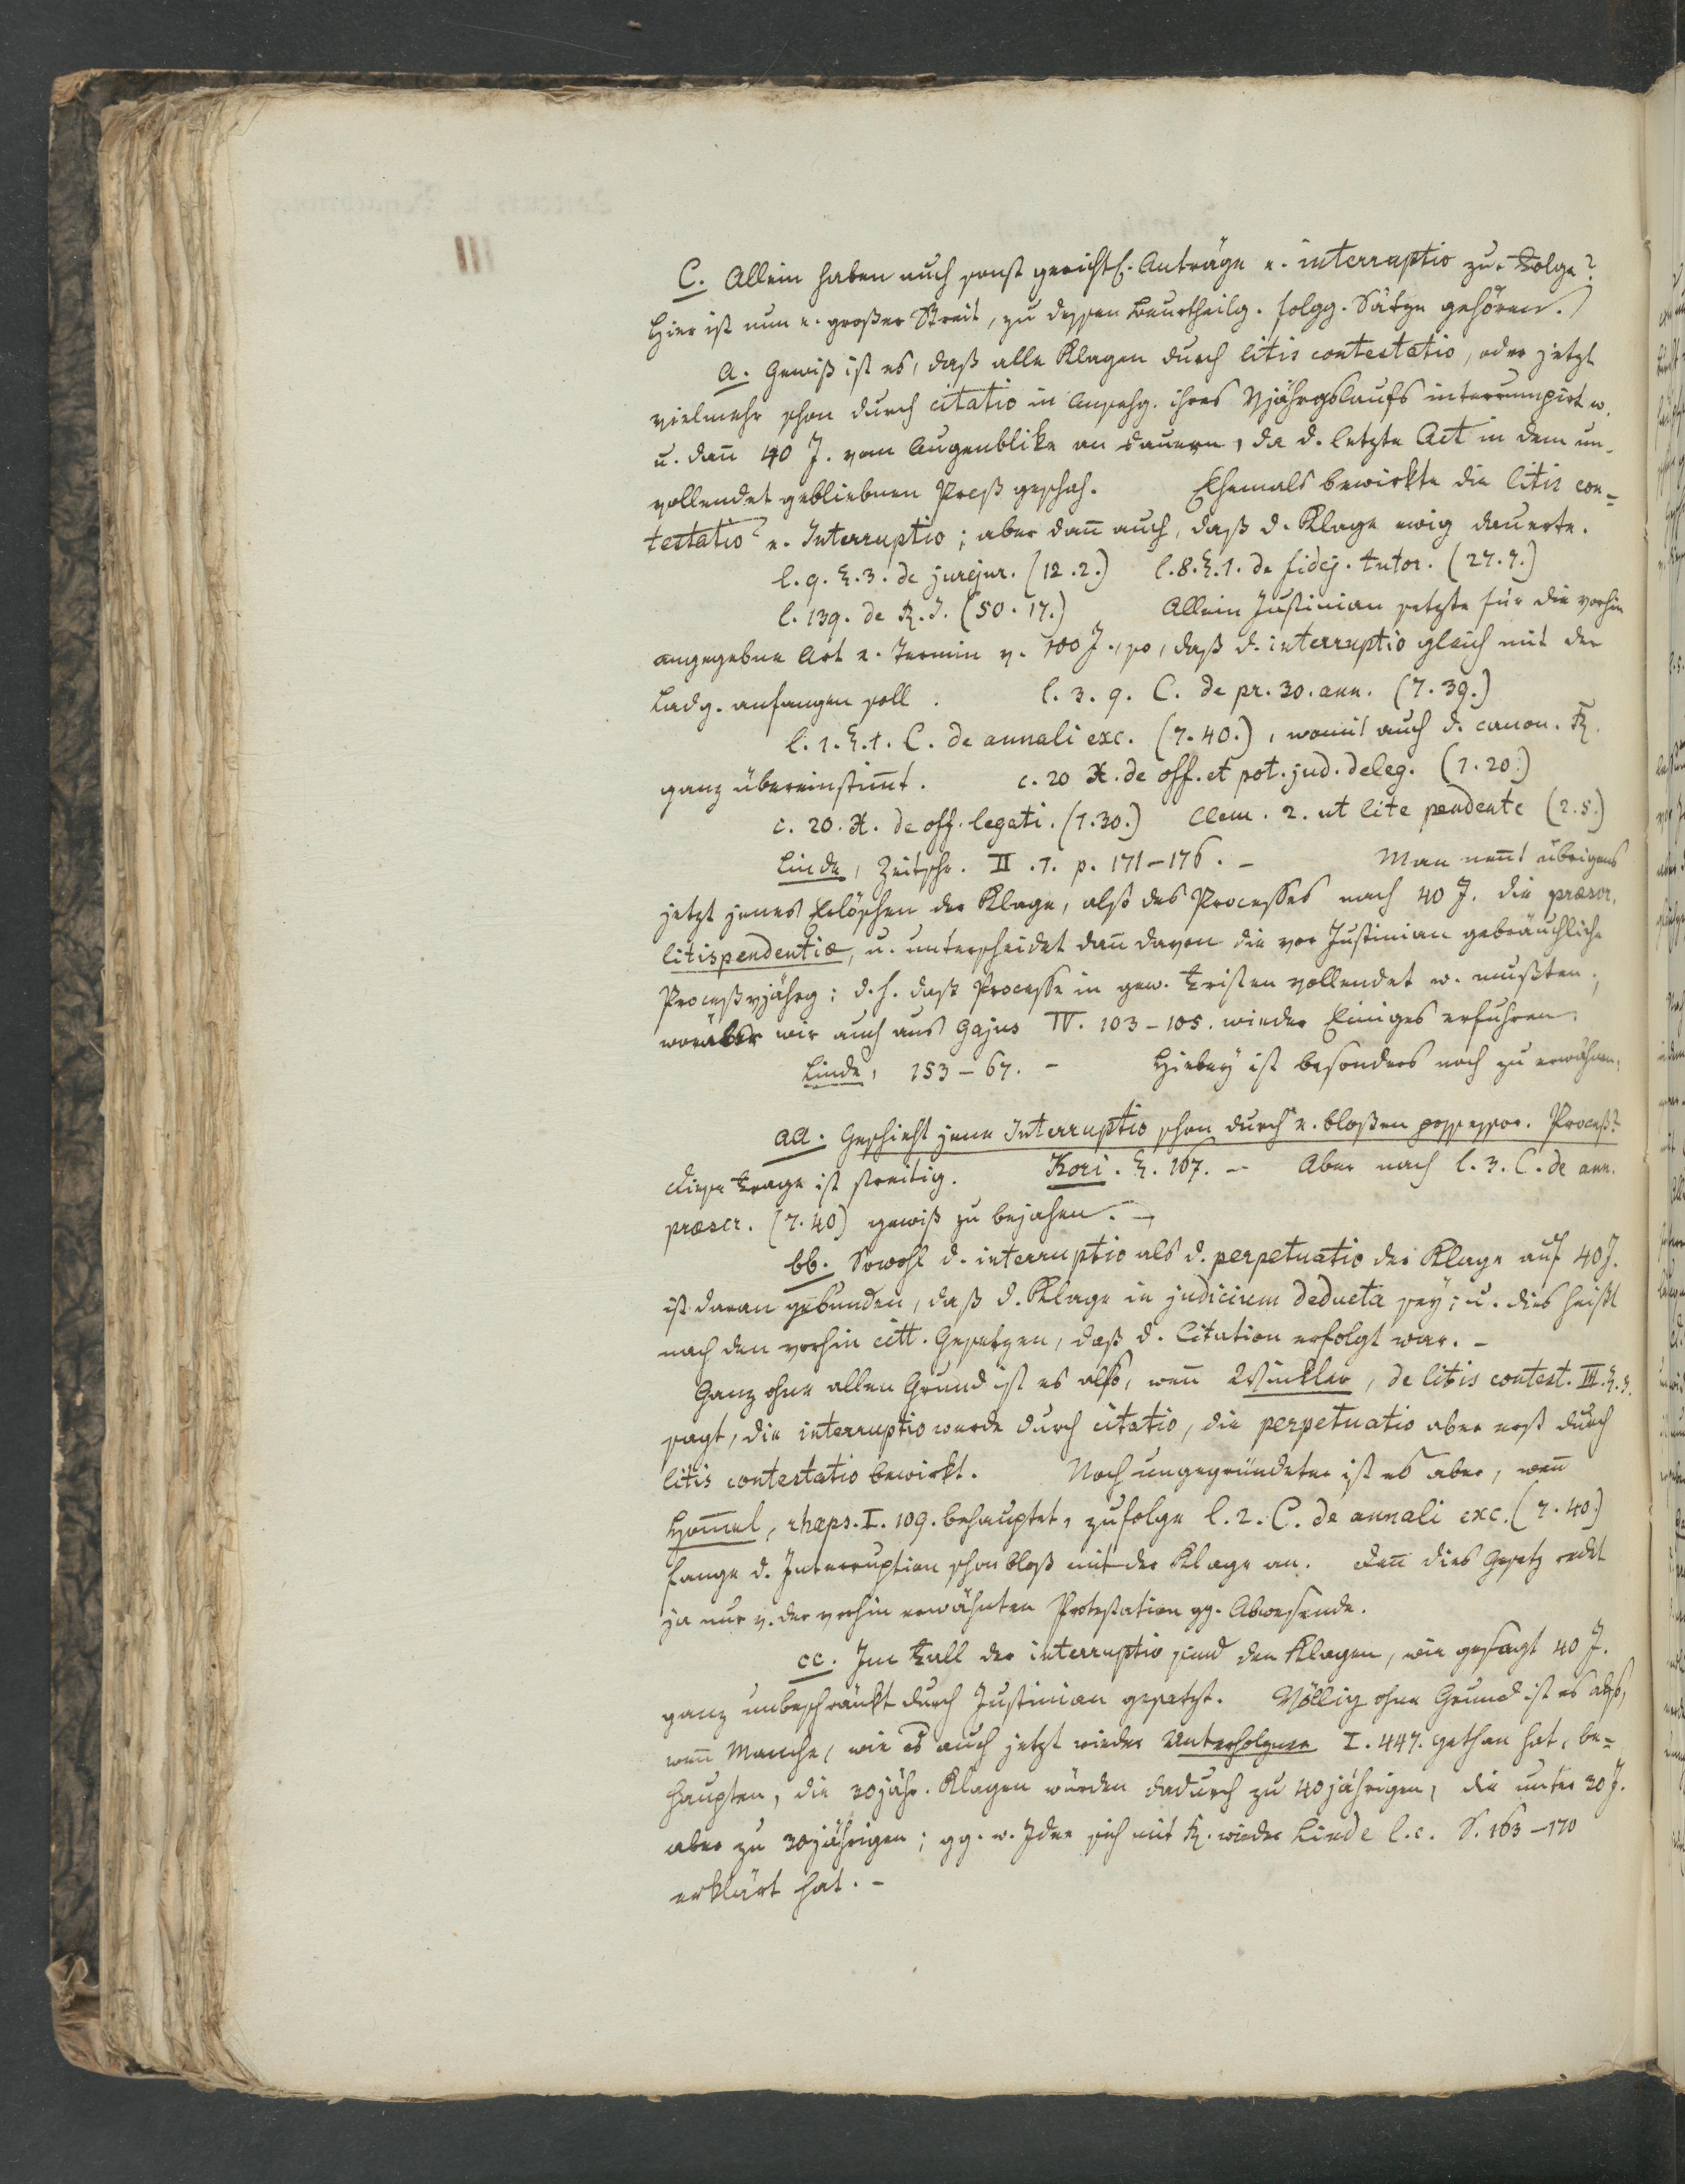 C. Allein haben auch sonst gerichtl. Anträge e. interruptio zur Folge?
Hier ist nun e. großer Streit, zu dessen Beurtheilg. folgg. Sätze gehören.
a. Gewiß ist es, daß alle Klagen durch litis contestatio, oder jetzt
vielmehr schon durch citatio in Ansehg. ihres Vjährgslaufs interrumpirt w.
u. dañ 40 J. vom Augenblike an dauern, da d. letzte Act in dem un-
vollendet gebliebnen Proceß geschah. Ehemals bewirkte die litis con=
testatio e. Interruptio; aber dañ auch, daß d. Klage ewig dauerte.
l. 9. §. 3. de jurejur. (12.2.) l. 8. §. 1. de fidej. tutor. (27.7.)
l. 139. de R. J. (50.17.) Allein Justinian setzte für die vorhin
angegebne Art e. Termin v. 100 J., so, daß d. interruptio gleich mit der
Ladg. anfangen soll. l. 3. 9. C. de pr. 30. ann. (7.39.)
l. 1. §. 1. C. de annali exc. (7.40.), womit auch d. canon. R.
ganz übereinstim̃t. c. 20 X. de off. et pot. jud. deleg. (1.20.)
c. 20. X. de off. legati. (1.30.) Clem. 2. ut lite pendente (2.5.)
Linde, Zeitschr. II. 1. p. 171–176. – Man neñt übrigens
jetzt jenes Erlöschen der Klage, also des Processes nach 40 J. die præscr.
litispendentiæ, u. unterscheidet dañ davon die vor Justinian gebräuchliche
Proceßvjährg: d. h. daß Processe in gew. Fristen vollendet w. mußten;
worüber wir auch aus Gajus IV. 103–105. wieder Einiges erfuhren.
Linde, 153–67. – Hiebey ist besonders noch zu erwähnen:
aa. Geschieht jene Interruptio schon durch e. bloßen possessor. Proceß?
Diese Frage ist streitig. Kori. §. 167. – Aber nach l. 3. C. de ann.
præscr. (7.40) gewiß zu bejahen. –
bb. Sowohl d. interruptio als d. perpetuatio der Klage auf 40 J.
ist daran gebunden, daß d. Klage in judicium deducta sey; u. dies heißt
nach den vorhin citt. Gesetzen, daß d. Citation erfolgt war. –
Ganz ohne allen Grund ist es also, weñ Winkler, de litis contest. III. §. 3.
sagt, die interruptio werde durch citatio, die perpetuatio aber erst durch
litis contestatio bewirkt. Noch ungegründeter ist es aber, weñ
Hom̃el, rhaps. I. 109. behauptet, zufolge l. 2. C. de annali exc. (7.40.)
fange d. Interruption schon bloß mit der Klage an. Deñ dies Gesetz redet
ja nur v. der vorhin erwähnten Protestation gg. Abwesende.
cc. Im Fall der interruptio sind den Klagen, wie gesagt 40 J.
ganz unbeschränkt durch Justinian gesetzt. Völlig ohne Grund ist es also,
weñ Manche, wie es auch jetzt wieder Unterholzner I. 447. gethan hat, be=
haupten, die 30jähr. Klagen würden dadurch zu 40jährigen, die unter 30 J.
aber zu 30jährigen; gg. w. Idee sich mit R. wieder Linde l. c. S. 163–170
erklärt hat. –